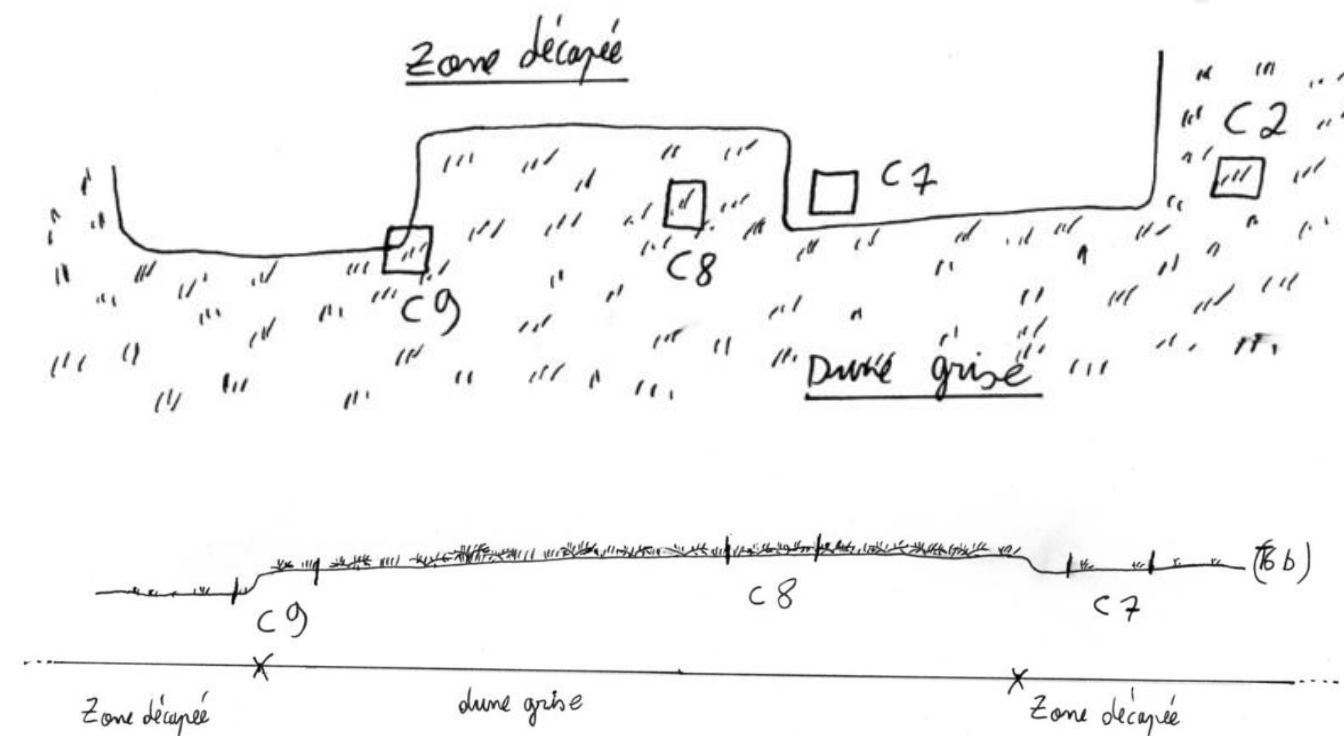 Zone décapée
C2
C7
C8
C9
Dune grise
C9
C8
C7
Zone décapée
dune grise
Zone décapée